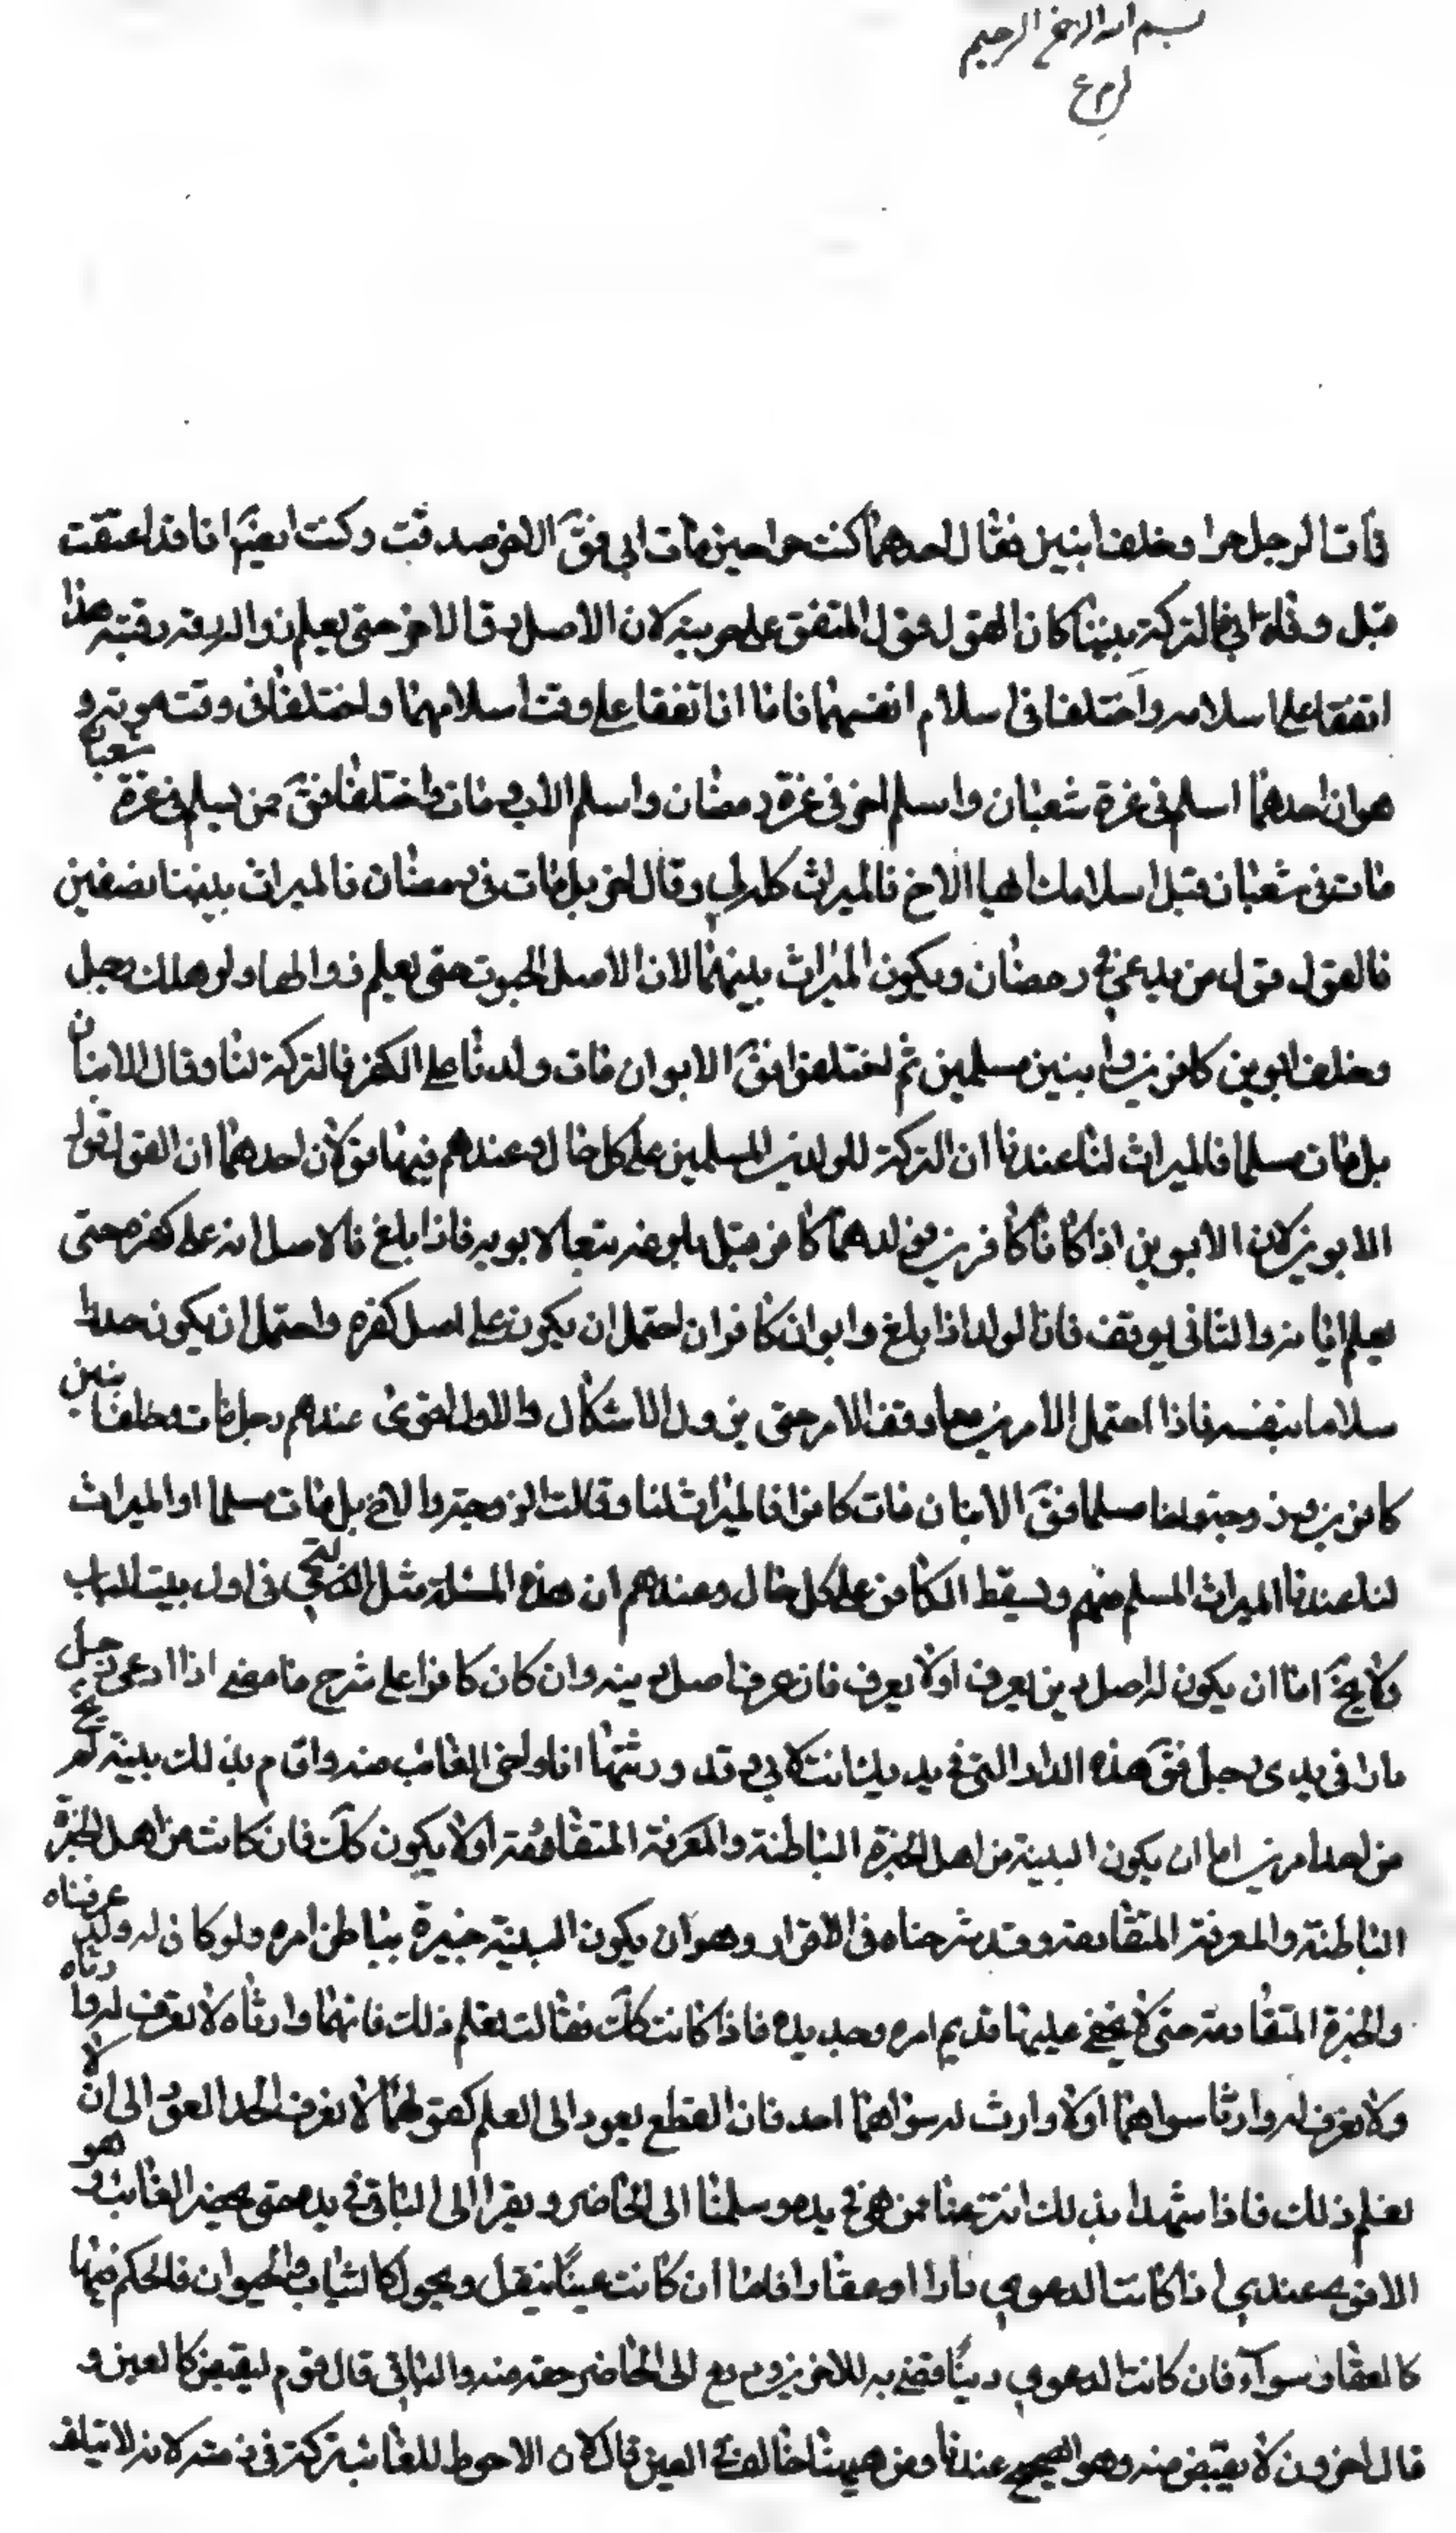 بسم الله الرحمن الرحيم
مات الرجل حرا وخلف ابنين فقال احدهما كنت حرا حين مات ابي فقَ الاخر صدقت وكنت ايضًا انا قد اعتقت
قبل وفاة ابي فالتركة بيننا كان القول قول المتفق على حريته لان الاصل رق الاخر حتى يعلم زواله رقيته هذا
اتفقا على اسلامه واختلفا في اسلام انفسهما فاما ان اتفقا على وقت اسلامهما واختلفا في وقت موته و
هو ان احدهما اسلم في غرة شعبان واسلم اخر في غرة رمضان واسلم الاب ومات واختلفا فقَ من يسلم في غرة شعبان
مات في شعبان قبل اسلامك ايها الاخ فالميراث كله لي وقال اخر بل مات في رمضان فالميراث بيننا نصفين
فالقول قول من يدعي في رمضان ويكون الميراث بينهما لان الاصل الحيوة حتى يعلم زوالها ولو هلك رجل
وخلف ابوين كافرين وابنين مسلمين ثم اختلفوا فقَ الابوان مات ولدنا على الكفر فالتركة لنا وقال الابنان
بل مات مسلما فالميراث لنا عندنا ان التركة للولدين المسلمين على كل حال وعندهم فيها قولان احدهما ان القول قول
الابوين لان الابوين اذا كانا كافرين فولدهما كافر قبل بلوغه تبعا لابويه فاذا بلغ فالاصل انه على كفره حتى
يعلم ايمانه والثاني يوقف فان الولد اذا بلغ وابوان كافران احتمل ان يكون على اصل كفره واحتمل ان يكون حدد ا
سلاما بنفسه فاذا احتمل الامرين معا وقف الامر حتى يزول الاشكال والاول اقوى عندهم رجل مات وخلف ابنين
كافرين وزوجة واخا مسلما فقَ الابنان مات كافرا فالميراث لنا وقالت الزوجة والاخ بل مات مسلما او الميراث
لنا عندنا الميراث المسلم منهم ويسقط الكافر على كل حال وعندهم ان هذه المسئلة مثل التي في اول بيت الباب
ولا يخَ اما ان يكون له اصل دين يعرف اولا يعرف فان عرف اصل دينه وان كان كافرا على شرح ما مضى اذا ادعى رجل
دارا في يدي رجل فقَ هذه الدار التي في يديك كانت لابي وقد ورثتها انا واخي الغائب منه واقام بذلك بينة لم يخ
من احد امرين اما ان يكون البينة من اهل الخبرة الباطنة والمعرفة المتقادمة اولا يكون ككَ فان كانت من اهل الخبرة
الباطنة والمعرفة المتقادمة وقد شرحناه في الاقرار وهو ان يكون البينة خبيرة بباطن امره ولو كان له ولد عرفناه
والخبرة المتقادمة حتى لا يخفى عليها قديم امره وجديده فاذا كانت ككَ فقالت نعلم ذلك فانهما وارثاه لا نعرف له وارثاه
ولا نعرف له وارثا سواهما اولا وارث له سواهما احد فان القطع يعود الى العلم كقولهما لا نعرف احد العود الى ان لا
نعلم ذلك فاذا شهدا بذلك انتزعنا من هو في يده وسلمنا الى الحاضر ويقر الى الباقي في يده حتى يحضر الغائب و هو
الاقوى عندي اذا كانت الدعوى دارا او عقارا فاما ان كانت عينًا ينقل ويحول كالثياب والحيوان فالحكم فيها
كالعقار سوآء فان كانت الدعوى دينًا قضى به للاخرين ودفع الى الحاضر حقه منه والباقي قال قوم ليقبض كالعين و
قال اخرون لا يقبض منه وهو الصحيح عندنا ومن هيهنا خالف العين قال لان الاحوط للغائب تركه في ذمته لانه لا يتلف